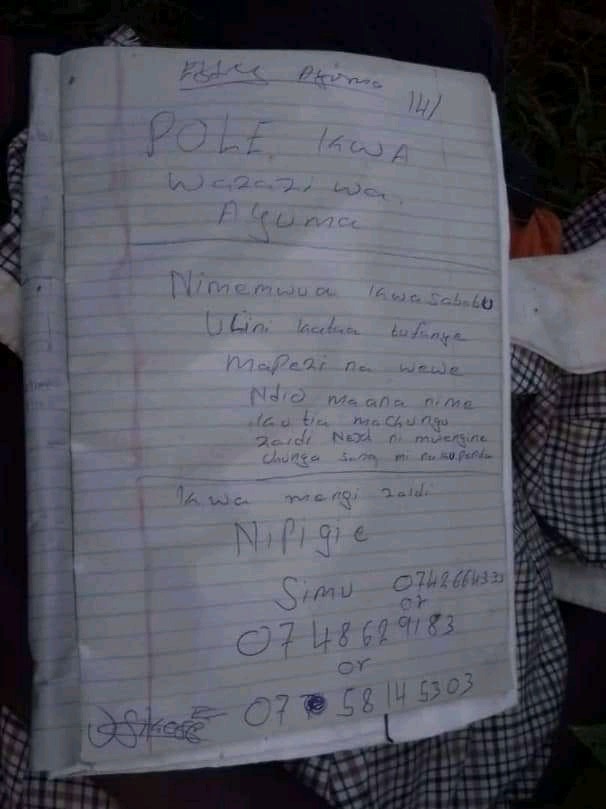 Ayuma
14/
POLE KWA
Wazazi wa
Ayuma
Nimemwua kwasababu
Ulini kataa tufanye
Mapezi na wewe
Ndio maana nime
tia machungu
zaidi Next ni mwengine
chunga sana mi nakupenda
Kwa mengi zaidi
NiPigie
Simu 0742664333
or
0748629183
or
077 58145303